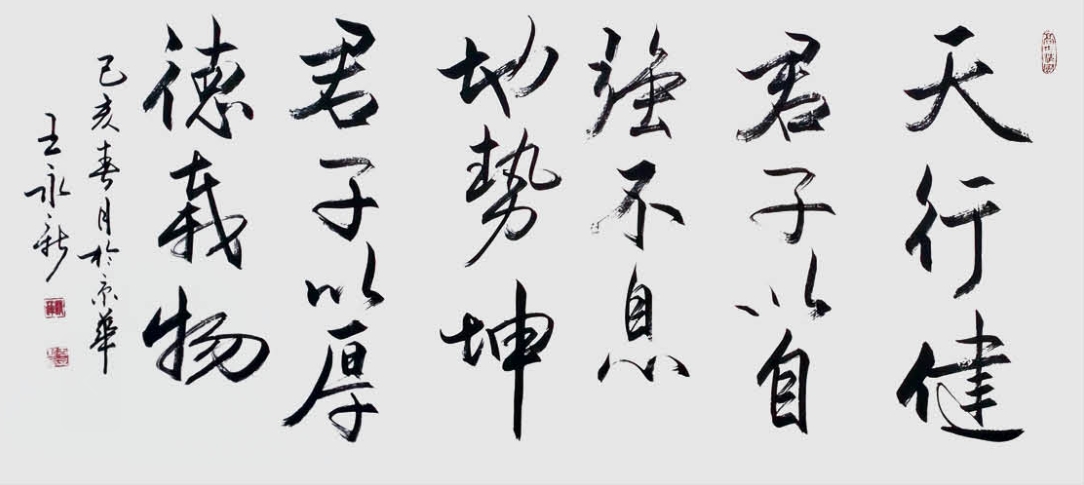 天行健
君子以自
強不息
地勢坤
君子以厚
德載物
己亥春月於京華
王永新